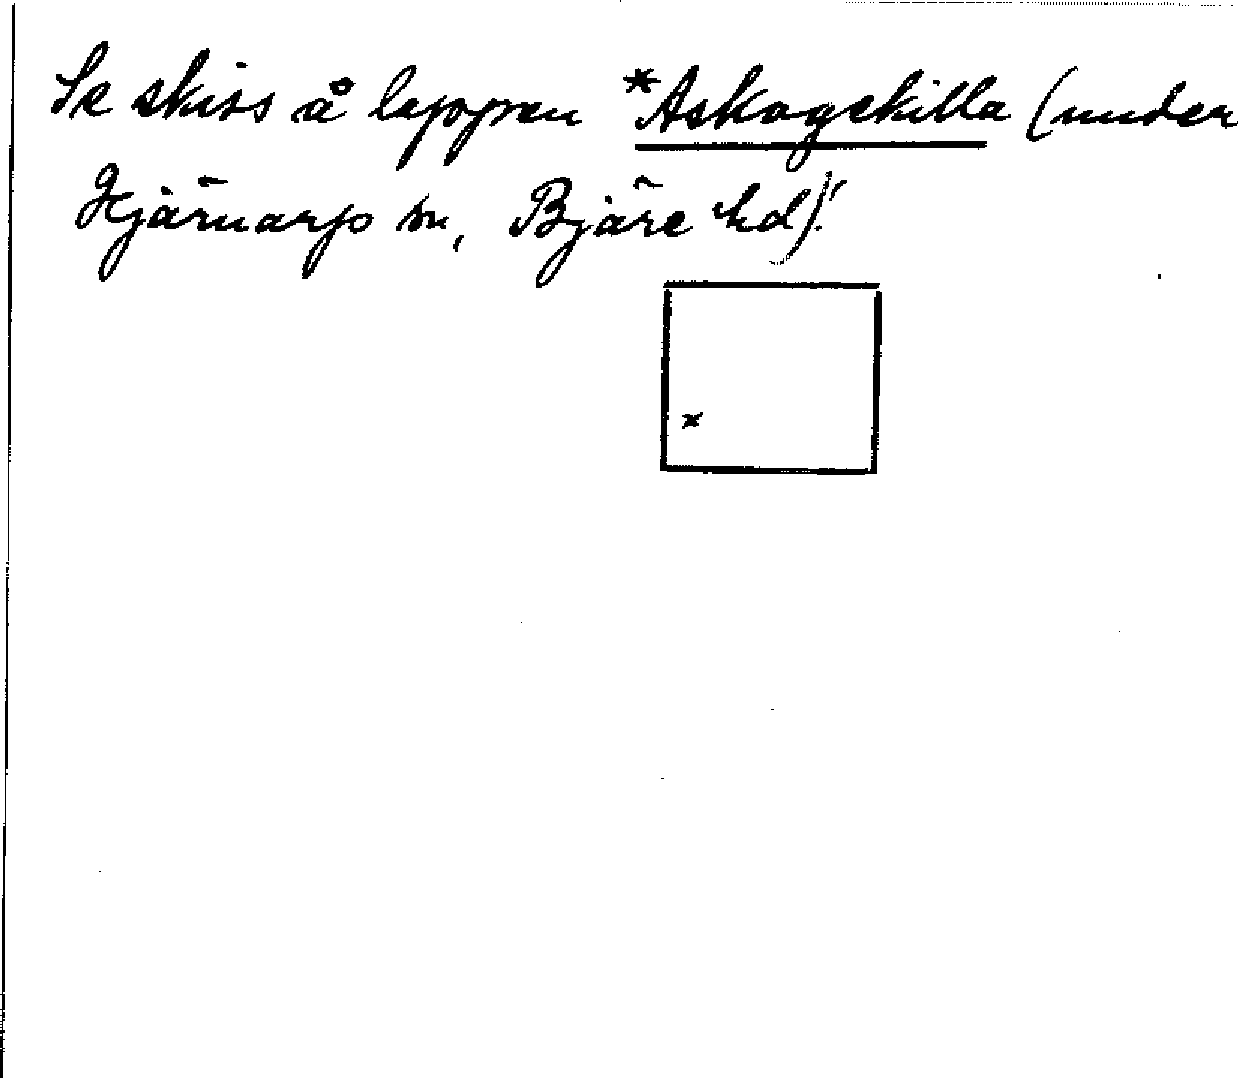 Se skiss å lappen *Askagekilla (under
Hjärnarps sn, Bjäre hd)!
x